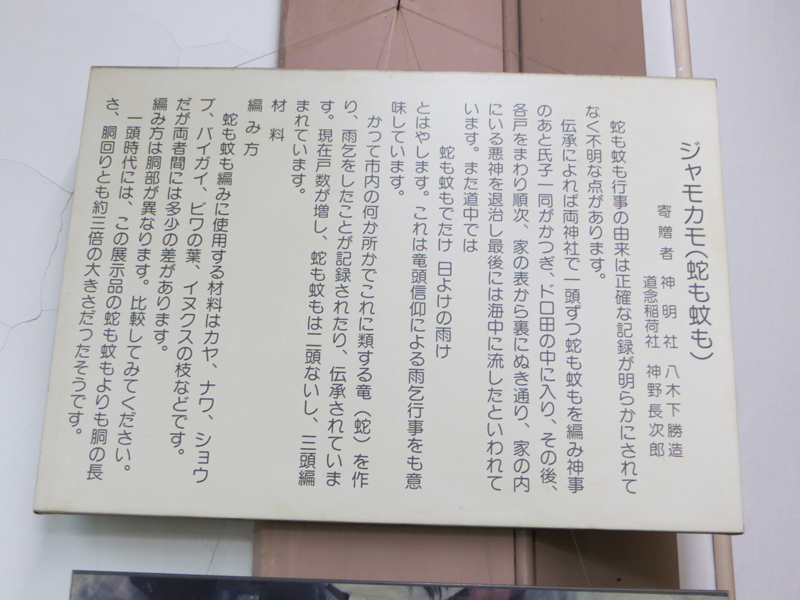 ジャモカモ(蛇も蚊も)
寄贈者 神明社 八木下勝造
道念稲荷社 神野長次郎
蛇も蚊も行事の由来は正確な記録が明らかにされて
なく不明な点があります。
伝承によれば両神社で一頭ずつ蛇も蚊もを編み神事
のあと氏子一同がかつぎ、ドロ田の中に入り、その後、
各戸をまわり順次、家の表から裏にぬき通り、家の内
にいる悪神を退治し最後には海中に流したといわれて
います。また道中では
蛇も蚊もでたけ 日よけの雨け
とはやします。これは竜頭信仰による雨乞行事をも意
味しています。
かつて市内の何か所かでこれに類する竜(蛇)を作
り、雨乞をしたことが記録されたり、伝承されていま
す。現在戸数が増し、蛇も蚊もは二頭ないし、三頭編
まれています。
材料
編み方
蛇も蚊も編みに使用する材料はカヤ、ナワ、ショウ
ブ、バイガイ、ビワの葉、イヌクスの枝などです。
だが両者間には多少の差があります。
編み方は胴部が異なります。比較してみてください。
一頭時代には、この展示品の蛇も蚊もよりも胴の長
さ、胴回りとも約三倍の大きさだつたそうです。